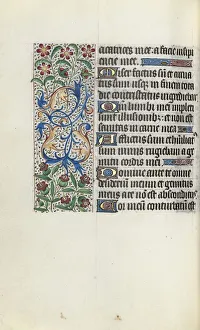 catrices mee: a facie insipi
cie mee.
Miser factus sũ et curua
tus sum usq; in finem tota
die contristatus ingrediebar
Qm̃ lumbi mei impleti
sunt illusionib; : et non est
sanitas in carne mea.
Afflictus sum et humiliat
sum nimis rugiebam a ge
mitu cordis mei.
Domine ante te omne
desiderium meum et gemitus
meus a te non est absconditus
Cor meũ conturbatũ est